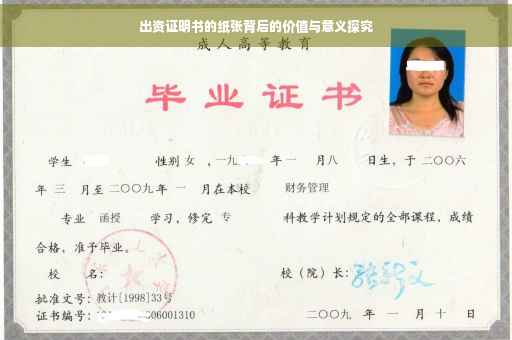 出资证明书的纸张背后的价值与意义探究
成人高等教育
毕业证书
学生 性别 女 ,一九 年一 月八 日生,于二〇〇六
年 三 月至二〇〇九年 一 月在本校 财务管理
专业 函授 学习,修完 专 科教学计划规定的全部课程,成绩
合格,准予毕业。
校 名: 校(院)长:
批准文号:教计[1998]33号
证书编号: 06001310 二〇〇九 年 一 月 十 日